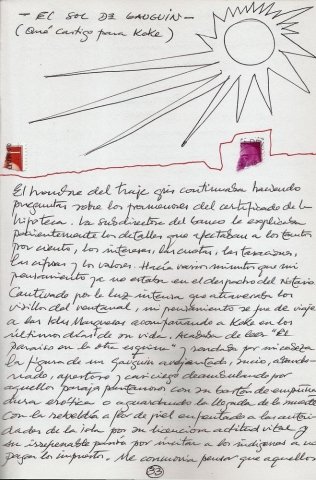 - EL SOL DE GAUGUIN -
(Qué castigo para Koke)
El hombre del traje gris continuaba haciendo
preguntas sobre los pormenores del certificado de la
hipoteca. La subdirectora del banco le explicaba
pacientemente los detalles que afectaban a los tantos
por ciento, los intereses, las cuotas, las tasaciones,
las cifras y los valores. Hacía varios minutos que mi
pensamiento ya no estaba en el despacho del Notario.
Cautivado por la luz intensa que atravesaba los
visillos del ventanal, mi pensamiento se fue de viaje
a las Islas Marquesas acompañando a Koke en los
últimos días de su vida. Acababa de leer "El
paraíso en la otra esquina" y rondaba por mi cabeza
la figura de un Gauguin avejentado, sucio, aban
donado, apestoso y casi ciego deambulando por
aquellos parajes pantanosos con su bastón de empuña
dura erótica o aguardando la llegada de la muerte
con la rebeldía a flor de piel enfrentado a las autori
dades de la isla por su licenciosa actitud vital y
su irrefrenable pasión por incitar a los indígenas a no
pagar los impuestos. Me conmovía pensar que aquellos
33